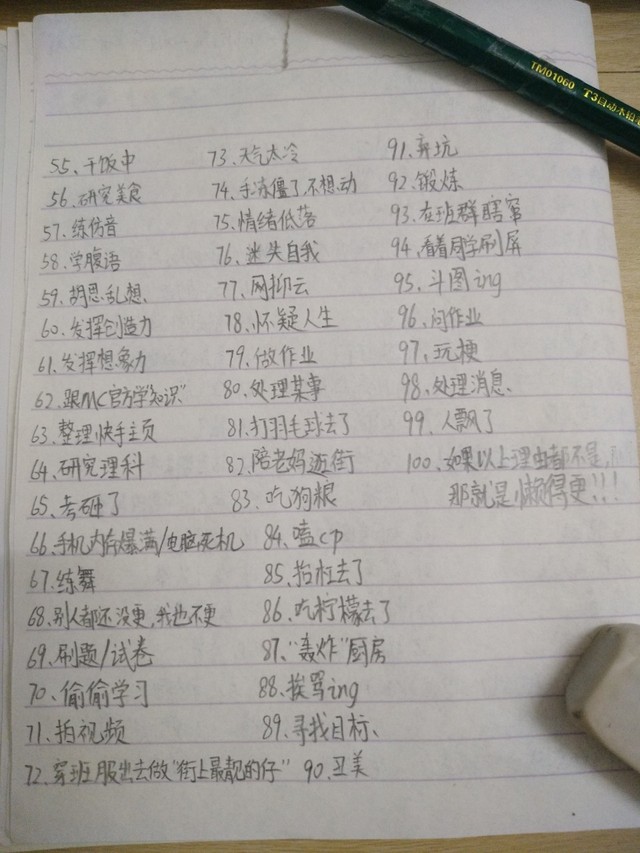 TM01060 T3自动木铅笔
55、干饭中
56、研究美食
57、练仿音
58、学腹语
59、胡思乱想
60、发挥创造力
61、发挥想象力
62、跟MC官方学"知识"
63、整理快手主页
64、研究理科
65、考砸了
66、手机内存爆满/电脑死机
67、练舞
68、别人都还没更,我也不更
69、刷题/试卷
70、偷偷学习
71、拍视频
72、穿班服出去做"街上最靓的仔"
73、天气太冷
74、手冻僵了,不想动
75、情绪低落
76、迷失自我
77、网抑云
78、怀疑人生
79、做作业
80、处理某事
81、打羽毛球去了
82、陪老妈逛街
83、吃狗粮
84、嗑cp
85、抬杠去了
86、吃柠檬去了
87、"轰炸"厨房
88、挨骂ing
89、寻找目标、
90、丑美
91、弃坑
92、锻炼
93、在班群瞎窜
94、看着同学刷屏
95、斗图ing
96、问作业
97、玩梗
98、处理消息、
99、人飘了
100、如果以上理由都不是,
那就是懒得更!!!